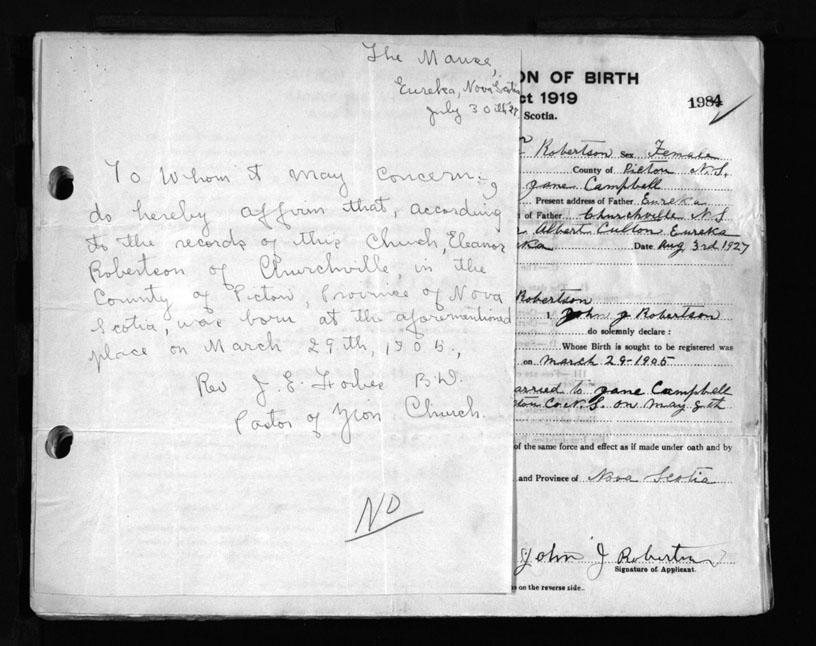 The Manse,
Eureka, Nova Scotia
July 30th 27
To Whom it may concern:,
do hereby affirm that, according
to the records of this Church, Eleanor
Robertson of Churchville, in the
County of Pictou, Province of Nova
Scotia, was born at the aforementioned
place on March 29th, 1905.,
Rev J. E. Forbes B.D.
Pastor of Zion Church.
NO
ON OF BIRTH
ct 1919
1984
Scotia.
Robertson Sex Female
County of Pictou N.S.
Jane Campbell
Present address of Father Eureka
of Father Churchville N S
Albert Culton Eureka
ka Date Aug 3rd 1927
Robertson
I, John J Robertson
do solemnly declare :
Whose Birth is sought to be registered was
on March 29-1905
arried to Jane Campbell
tou Co. N.S. on May 8th
of the same force and effect as if made under oath and by
and Province of Nova Scotia
John J Robertson
Signature of Applicant.
s on the reverse side.